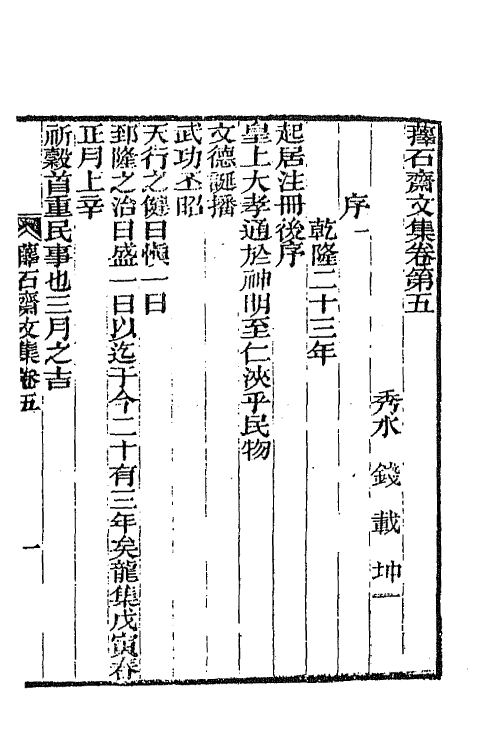 蘀石齋文集卷第五
秀水 錢載 坤一
序一
乾隆二十三年
起居注冊後序
皇上大孝通於神明至仁浹乎民物
文德誕播
武功丕昭
天行之健日愼一日
郅隆之治日盛一日以迄于今二十有三年矣龍集戊寅春
正月上辛
祈穀首重民事也三月之吉
蘀石齋文集卷五 一